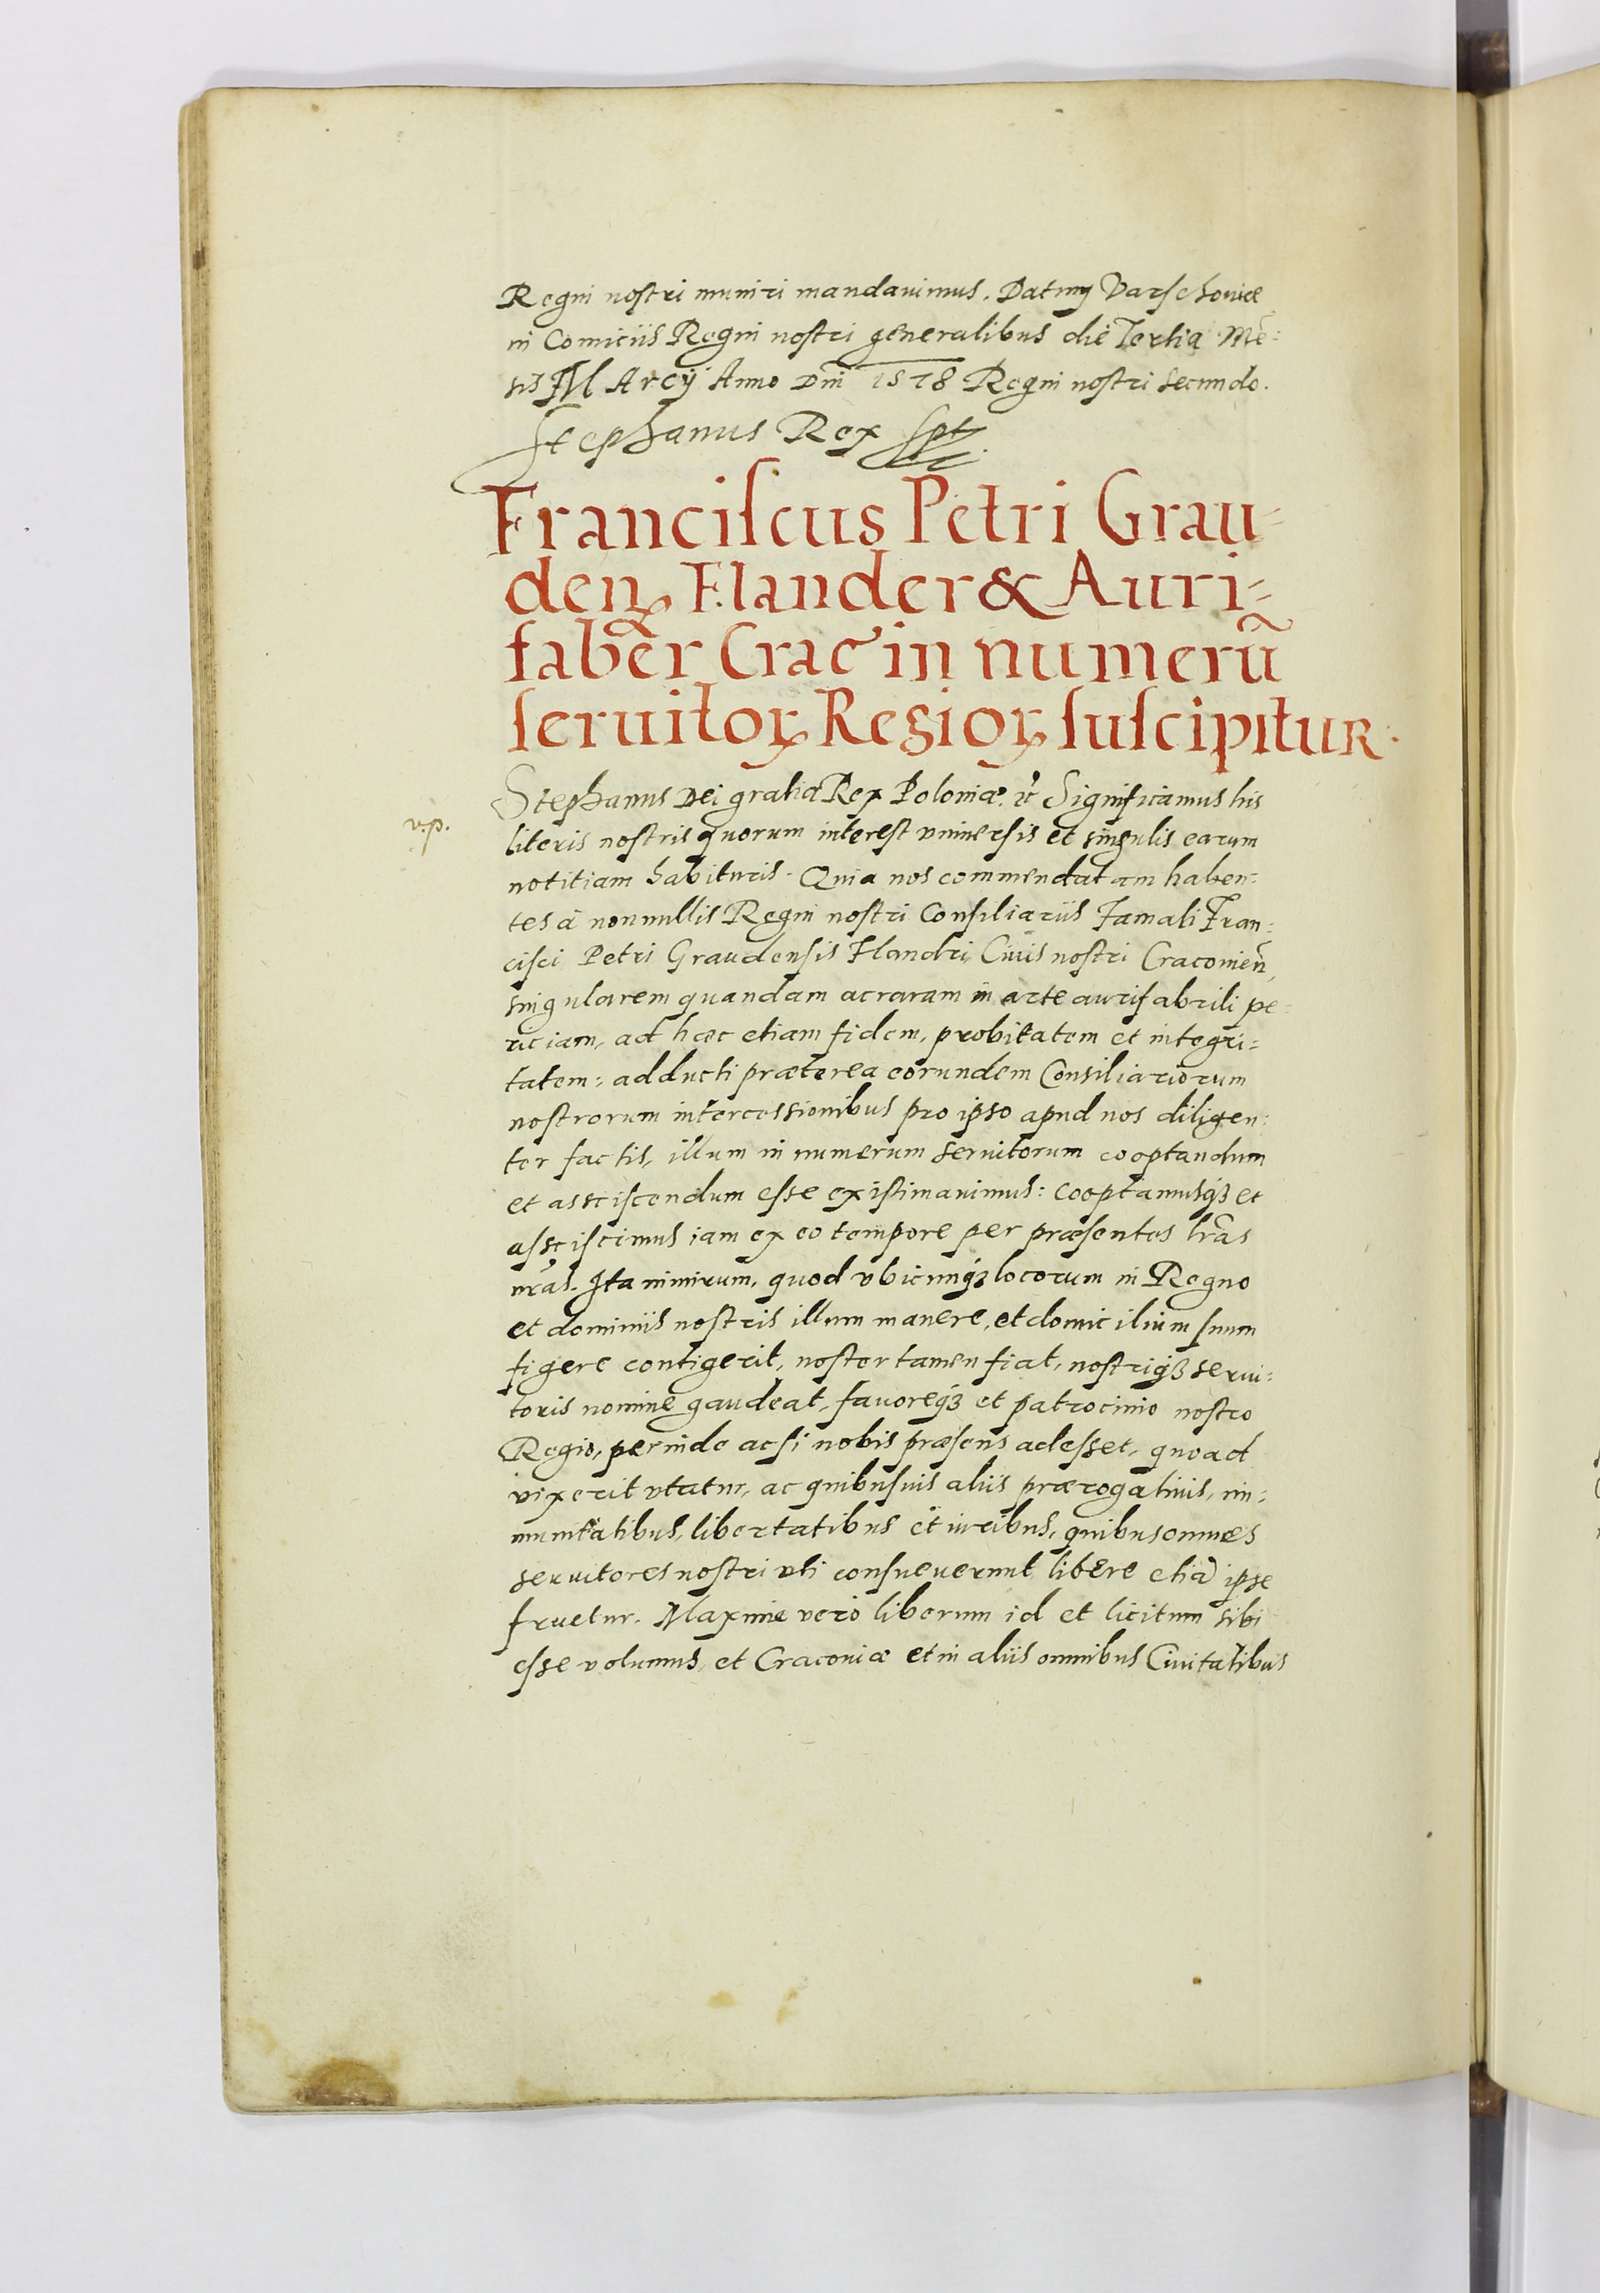 Regni nostri muniri mandauimus. Datum Varschouiæ
in Comiciis Regni nostri generalibus die Tertia Mē=
sis MArcÿ Anno Dni 1578 Regni nostri secundo.
Stephanus Rex sst
Franciſcus Petri Grau=
denꝭ Flander & Auri=
faber Crac in numerū
ſeruitoꝝ Regioꝝ ſuſcipitur.
Stephanus Dei gratia Rex Poloniæ. ꝛc Significamus his
v.p.
literis nostris quorum interest vniuersis et singulis earum
notitiam habituris. Quia nos commendatam haben=
tes à nonnullis Regni nostri Consiliariis Famati Fran=
cisci Petri Graudensis Flandri, Ciuis nostri Cracouieñ,
singularem quandam ac raram in arte aurifabrili pe=
riciam, ad hæc etiam fidem, probitatem et integri=
tatem: adducti præterea eorundem Consiliariorum
nostrorum intercessionibus pro ipso apud nos diligen=
ter factis, illum in numerum seruitorum cooptandum
et assciscendum esse existimauimus: cooptamusqꝫ et
assciscimus iam ex eo tempore per præsentes lrãs
nrãs. Ita nimirum, quod vbicunqꝫ locorum in Regno
et dominiis nostris illum manere, et domicilium suum
figere contigerit, noster tamen fiat, nostriqꝫ serui=
toris nomine gaudeat, fauoreqꝫ et patrocinio nostro
Regio, perinde ac si nobis præsens adesset, quoad
vixerit vtatur, ac quibusuis aliis prærogatiuis, im=
munitatibus, libertatibus et iuribus, quibus omnes
seruitores nostri vti consueuerunt libere etiã ipse
fruetur. Maxime vero liberum id et licitum sibi
esse volumus, et Cracouiæ et in aliis omnibus Ciuitatibus